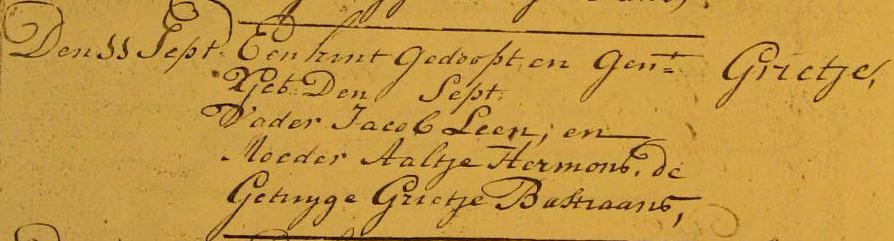 Den 11 Sept. Een kint Gedoopt en Gent= Grietje,
Geb: Den Sept.
Vader Jacob Leen, en
Moeder Aaltje Hermons, de
Getuyge Grietje Bastiaans,